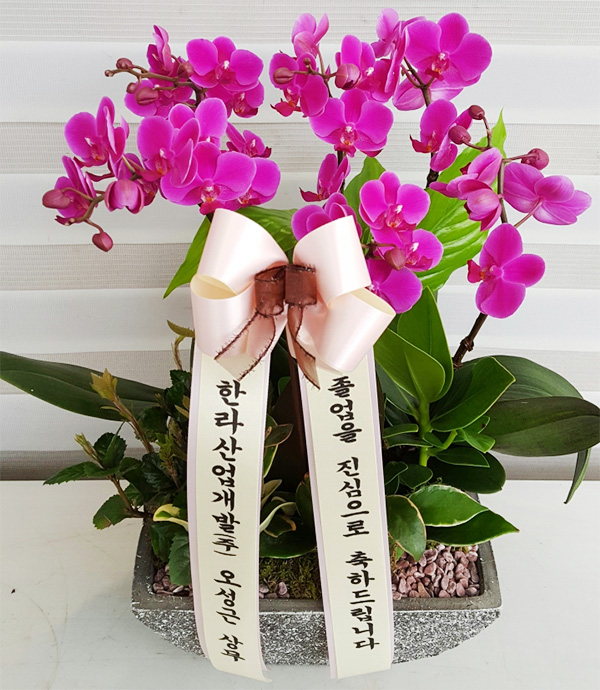 한라산업개발(주) 오성근 상무
졸업을 진심으로 축하드립니다